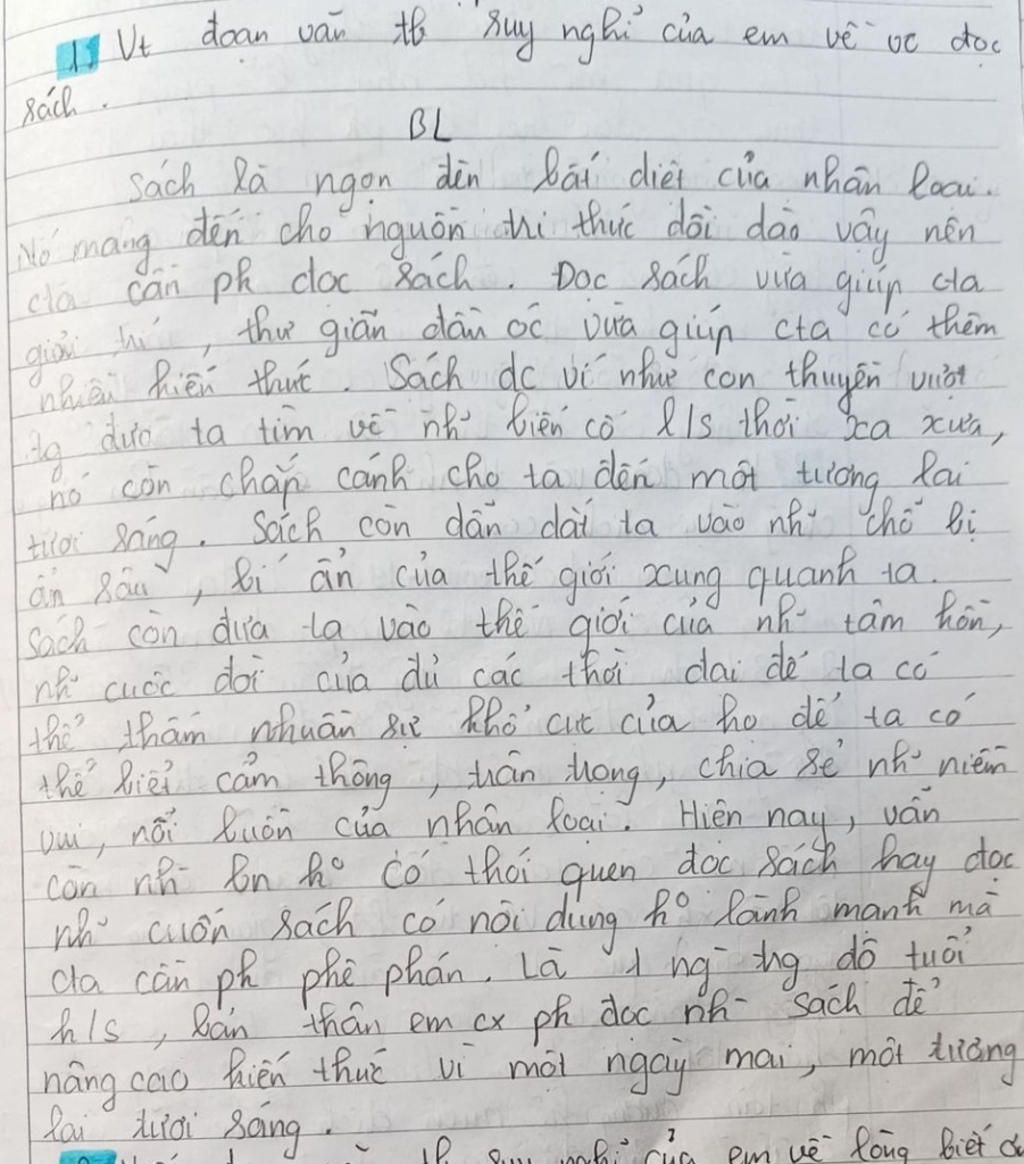 1. Vt đoạn văn tb suy nghĩ của em về vc đọc
sách.
BL
Sách là ngọn đèn bất diệt của nhân loại.
Nó mang đến cho nguồn tri thức dồi dào vậy nên
cta cần ph đọc sách. Đọc sách vừa giúp cta
giải trí, thư giãn đầu óc vừa giúp cta có thêm
nhiều kiến thức. Sách dc ví như con thuyền vượt
tg đưa ta tìm về nh~ biến cố l/s thời xa xưa,
nó còn chắp cánh cho ta đến một tương lai
tươi sáng. Sách còn dẫn dắt ta vào nh~ chỗ bị
ẩn sâu, bí ẩn của thế giới xung quanh ta.
Sách còn đưa ta vào thế giới của nh~ tâm hồn,
nh~ cuộc đời của đủ các thời đại để ta có
thể thấm nhuần sự khổ cực của họ để ta có
thể biết cảm thông, trân trọng, chia sẻ nh~ niềm
vui, nỗi buồn của nhân loại. Hiện nay, vẫn
còn nh~ bn ko có thói quen đọc sách hay đọc
nh~ cuốn sách có nội dung ko lành mạnh mà
cta cần ph phê phán. Là 1 ng tng độ tuổi
h/s, bản thân em cx ph đọc nh~ sách để
nâng cao kiến thức vì một ngày mai, một tương
lai tươi sáng.
suy nghĩ của em về lòng biết